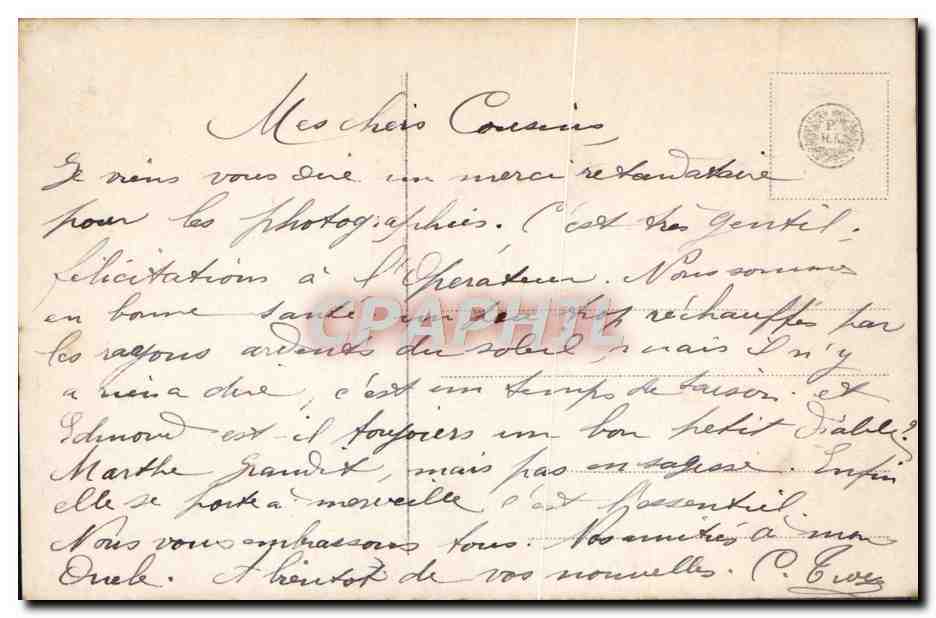 Mes chers Cousins,
Je viens vous dire un merci retardataire
pour les photographies. C'est très gentil.
félicitations à l'Opérateur. Nous sommes
en bonne santé un peu trop réchauffés par
les rayons ardents du soleil, mais il n'y
a rien a dire, c'est un temps de saison. et
Edmond est-il toujours un bon petit diable?
Marthe grandit, mais pas en sagesse. Enfin
elle se porte à merveille c'est l'essentiel.
Nous vous embrassons tous. Nos amitiés à mon
Oncle. A bientôt de vos nouvelles. C.
CPAPHIL